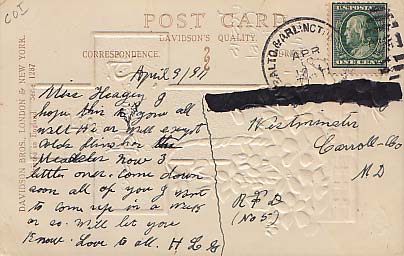 COI
POST CARD
DAVIDSON'S QUALITY.
CORRESPONDENCE.
DAVIDSON BROS. LONDON & NEW YORK.
1287
BALTO. & ARLINGTON
APR
U.S. POSTAGE
ONE CENT
April 9/
Miss
hope this you all
well We or well except
colds
now 3
little ones. Come down
soon all of you I want
to come up in a week
or so. Will let you
know. Love to all. H L G
Westminster
Carroll Co
MD
R F D
(No 5)